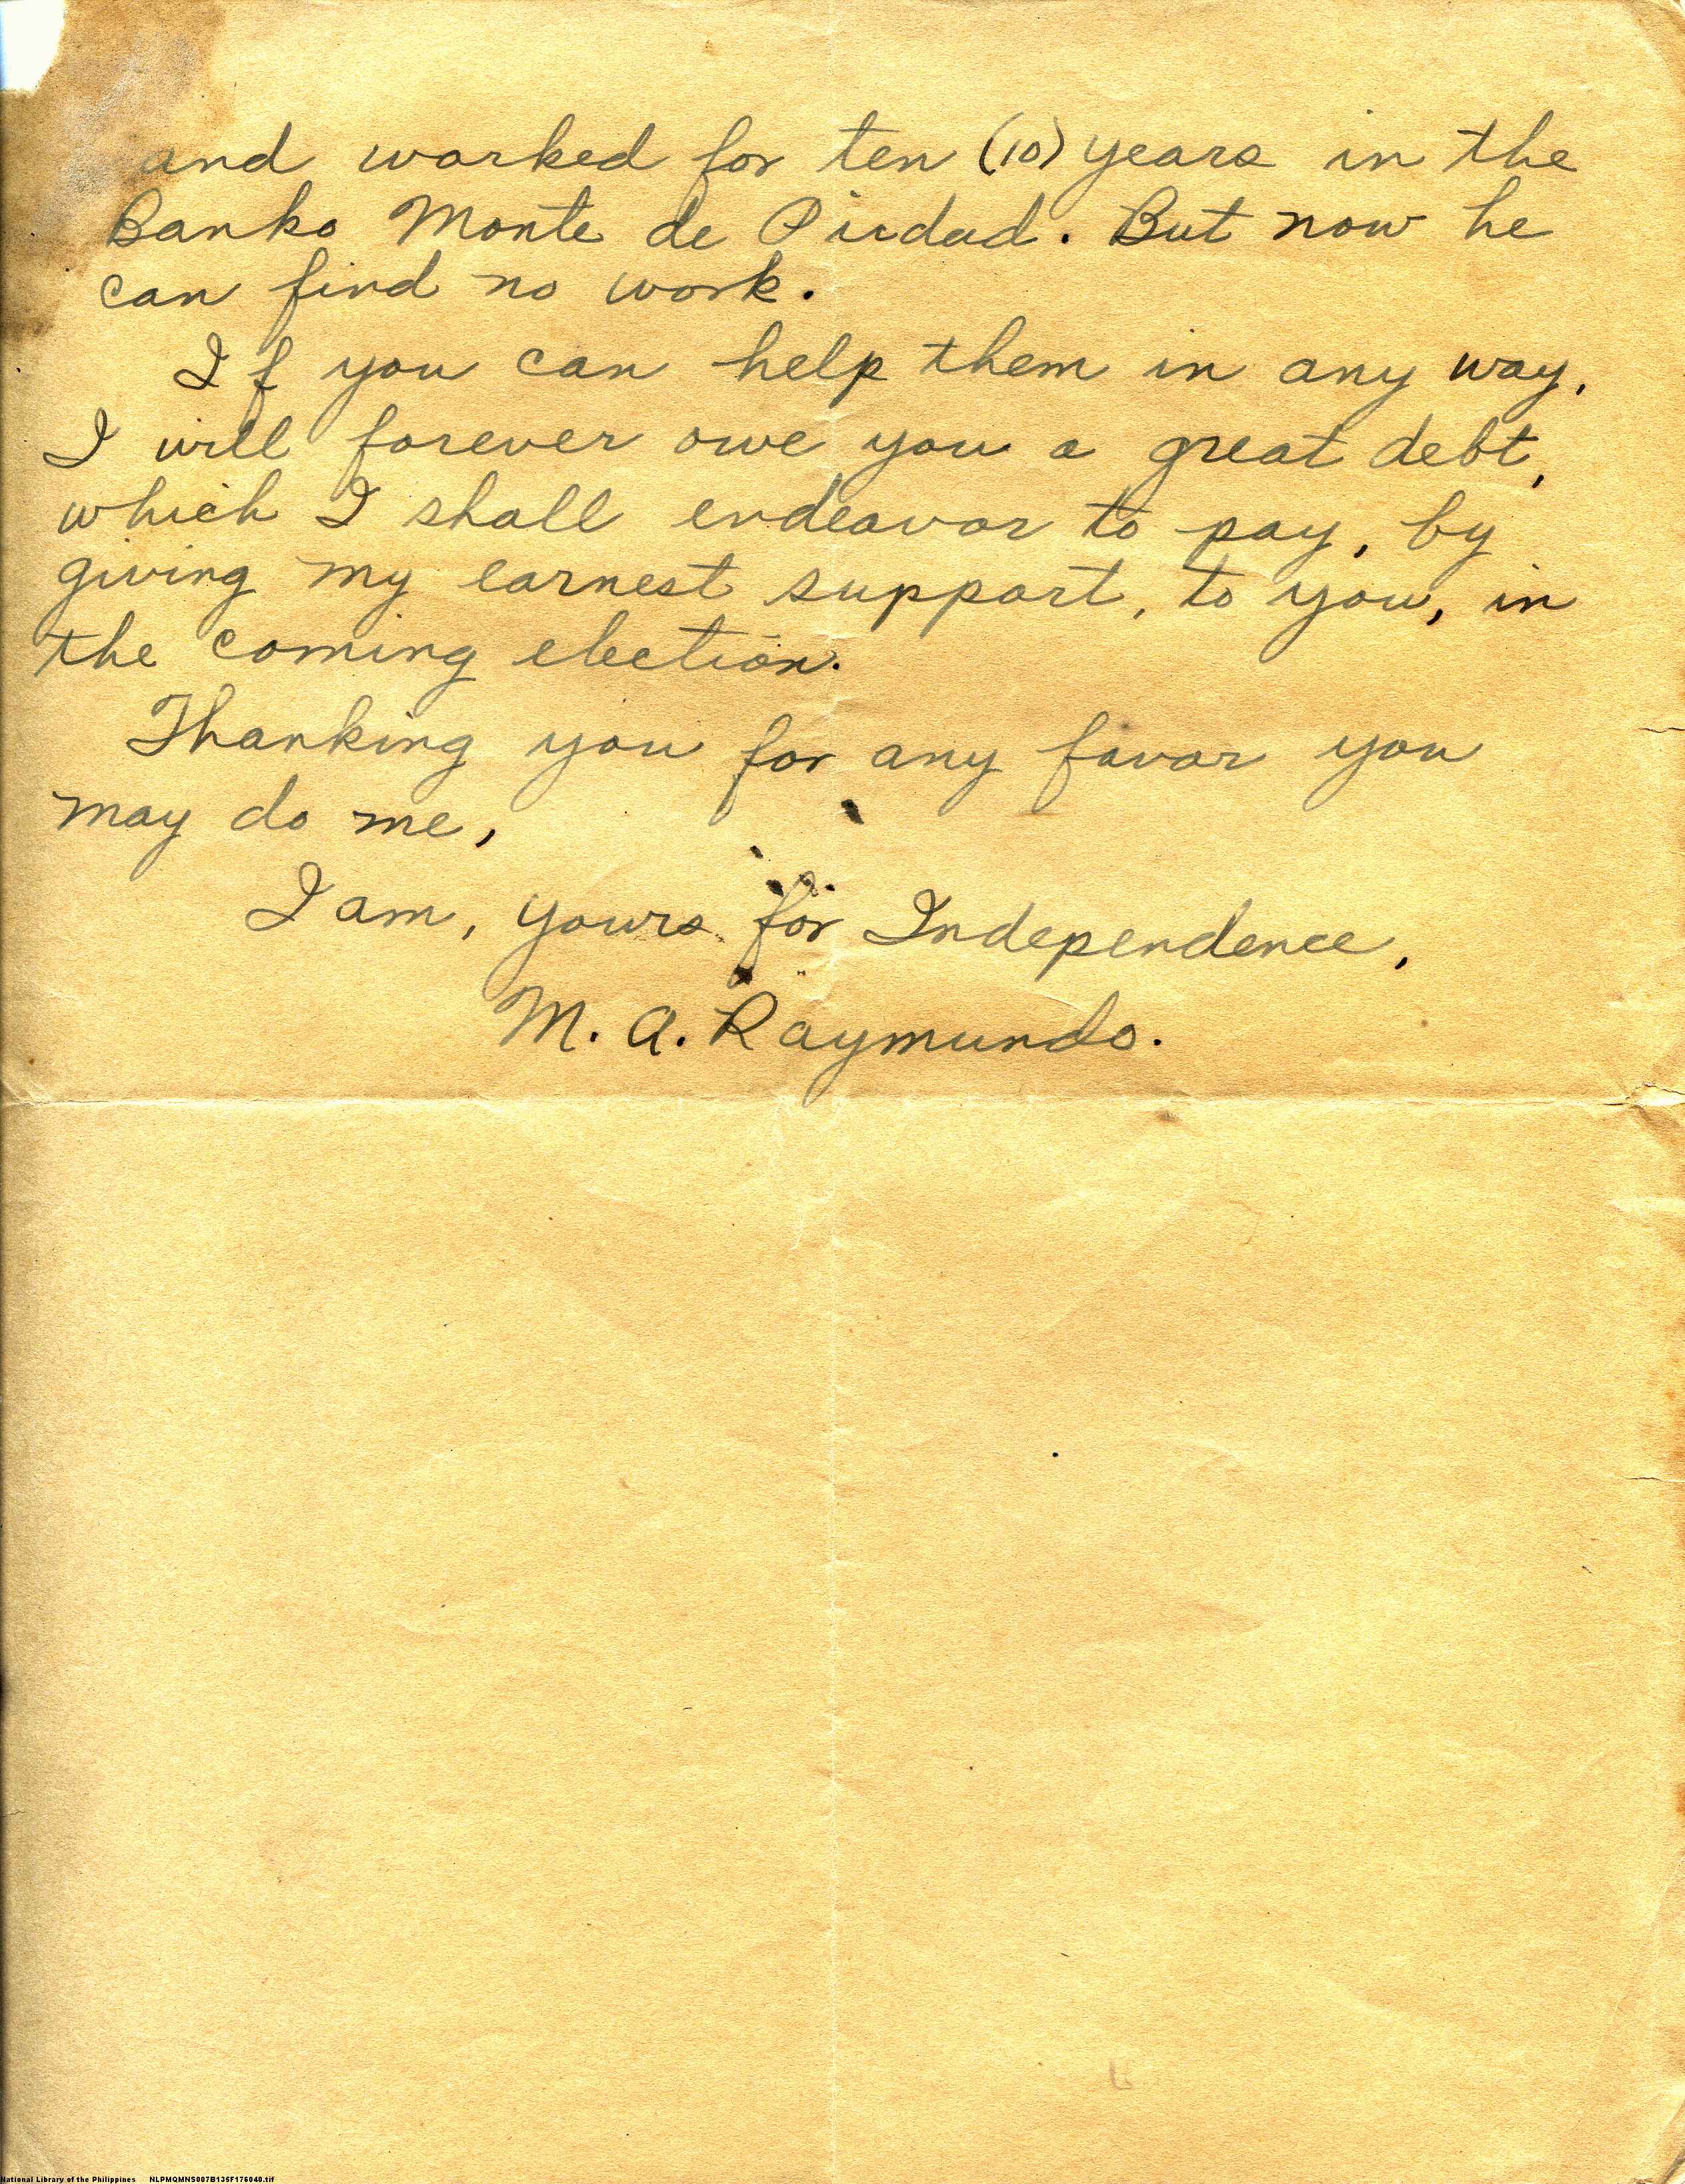 and worked for ten (10) years in the
Banko Monte de Piedad. But now he
can find no work.
If you can help them in any way,
I will forever owe you a great debt,
which I shall endeavor to pay, by
giving my earnest support, to you, in
the coming election.
Thanking you for any favor you
may do me,
I am, yours for Independence,
M. A. Raymundo.
National Library of the Philippines NLPMQMNS007B135F176040.tif